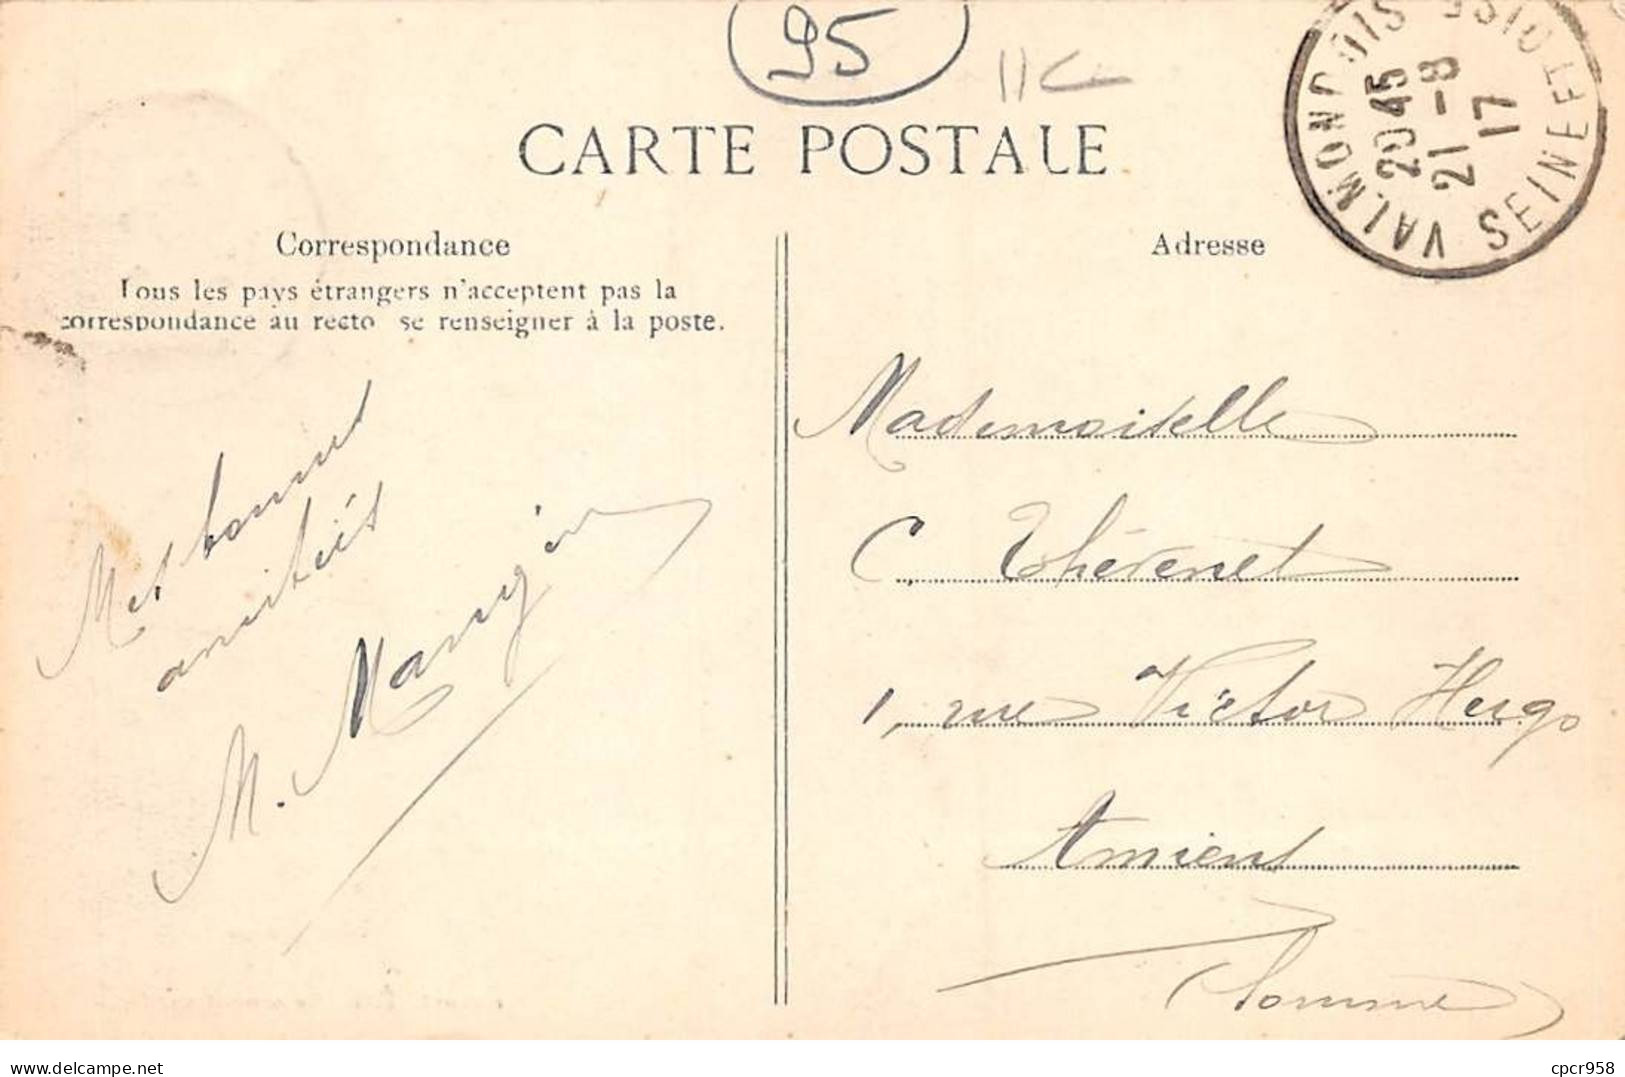 95
CARTE POSTALE
VALMONDOIS SEINE ET OISE
20 45
21 -8
17
Correspondance
Tous les pays étrangers n'acceptent pas la
correspondance au recto se renseigner à la poste.
Mes bonnes
amitiés
M. Mangin
Adresse
Mademoiselle
C. Thérenet
1, rue Victor Hugo
Amiens
(Somme)
delcampe.net
cpcr958